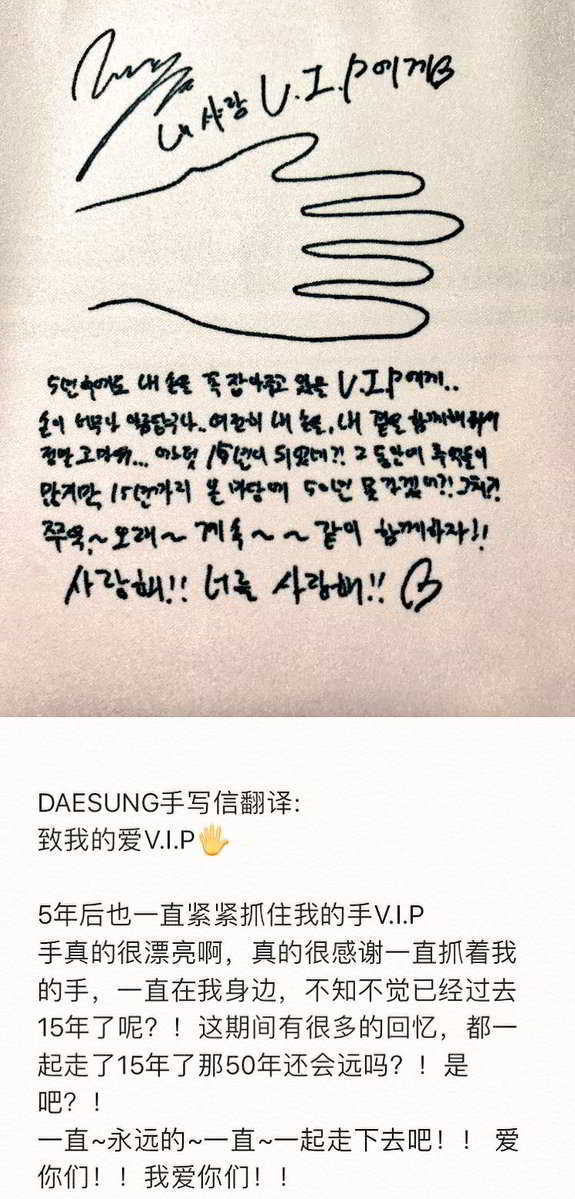 내 사랑 V.I.P에게
5년 후에도 내 손을 꼭 잡아주고 있을 V.I.P에게..
손이 너무나 아름답구나.. 여전히 내 손을, 내 곁을 함께해줘서
정말 고마워... 어느덧 15년이 되었네?! 그 동안에 추억들이
많지만 15년까지 온 마당에 50년 못가겠어?! 그치?!
쭈욱~ 오래~ 계속~~ 같이 함께하자!!
사랑해!! 너를 사랑해!!
DAESUNG手写信翻译:
致我的爱V.I.P🖐
5年后也一直紧紧抓住我的手V.I.P
手真的很漂亮啊，真的很感谢一直抓着我
的手，一直在我身边，不知不觉已经过去
15年了呢？！这期间有很多的回忆，都一
起走了15年了那50年还会远吗？！是
吧？！
一直~永远的~一直~一起走下去吧！！ 爱
你们！！我爱你们！！